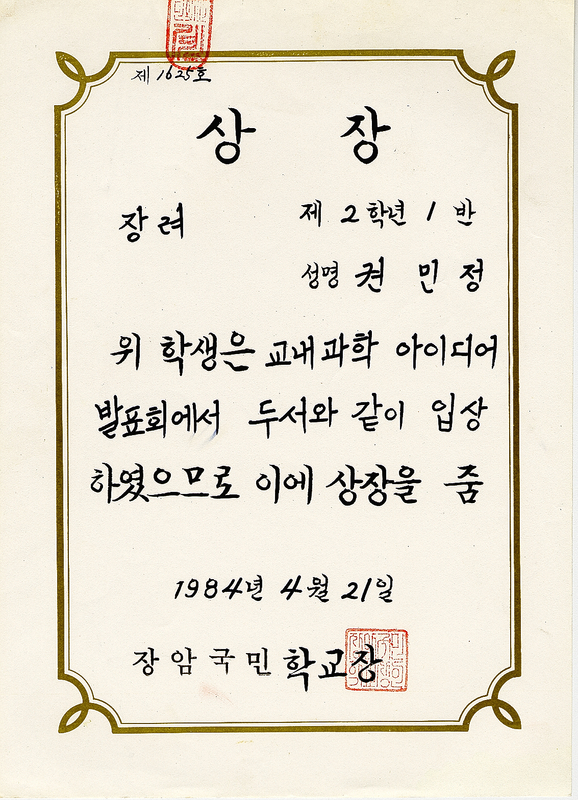 제 1625호
상 장
장려
제 2 학년 1 반
성명 권 민 정
위 학생은 교내과학 아이디어
발표회에서 두서와 같이 입상
하였으므로 이에 상장을 줌
1984년 4월 21일
장암국민학교장